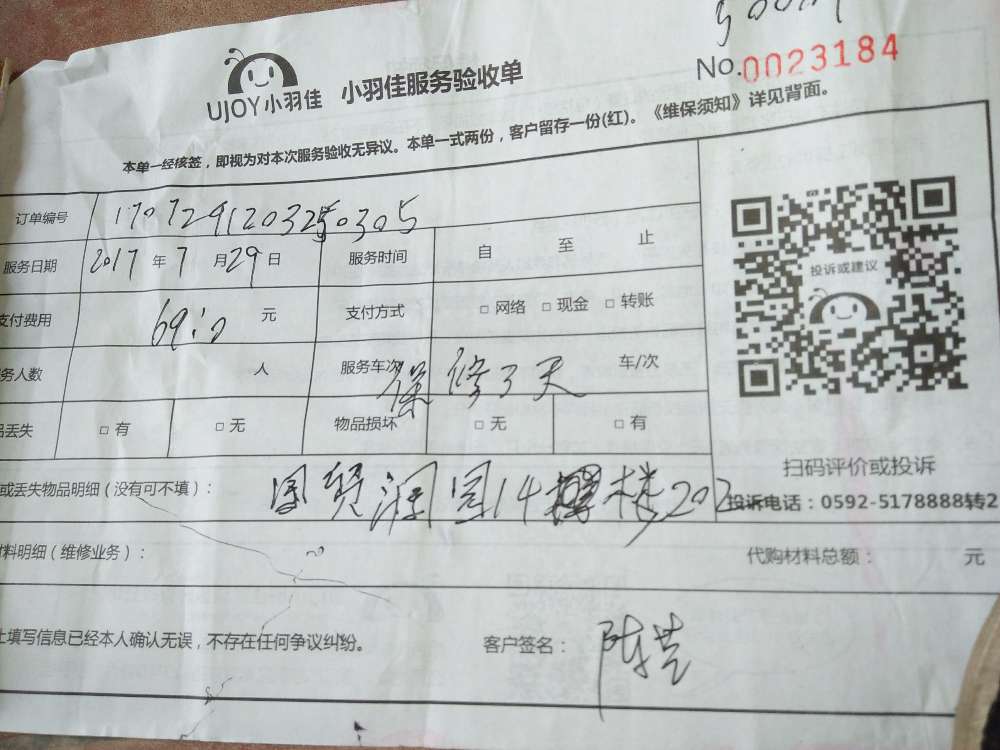 No.0023184
UJOY小羽佳 小羽佳服务验收单
本单一经核签，即视为对本次服务验收无异议。本单一式两份，客户留存一份(红)。《维保须知》详见背面。
订单编号 1707291203250305
服务日期 2017 年 7 月 29 日 服务时间 自 至 止
投诉或建议
支付费用 69:00 元 支付方式 □ 网络 □ 现金 □ 转账
务人数 人 服务车次 保修3天 车/次
品丢失 □ 有 □ 无 物品损坏 □ 无 □ 有
扫码评价或投诉
或丢失物品明细（没有可不填）： 国贸润园14 楼202
投诉电话：0592-5178888转2
材料明细（维修业务）： 代购材料总额： 元
上填写信息已经本人确认无误，不存在任何争议纠纷。 客户签名：